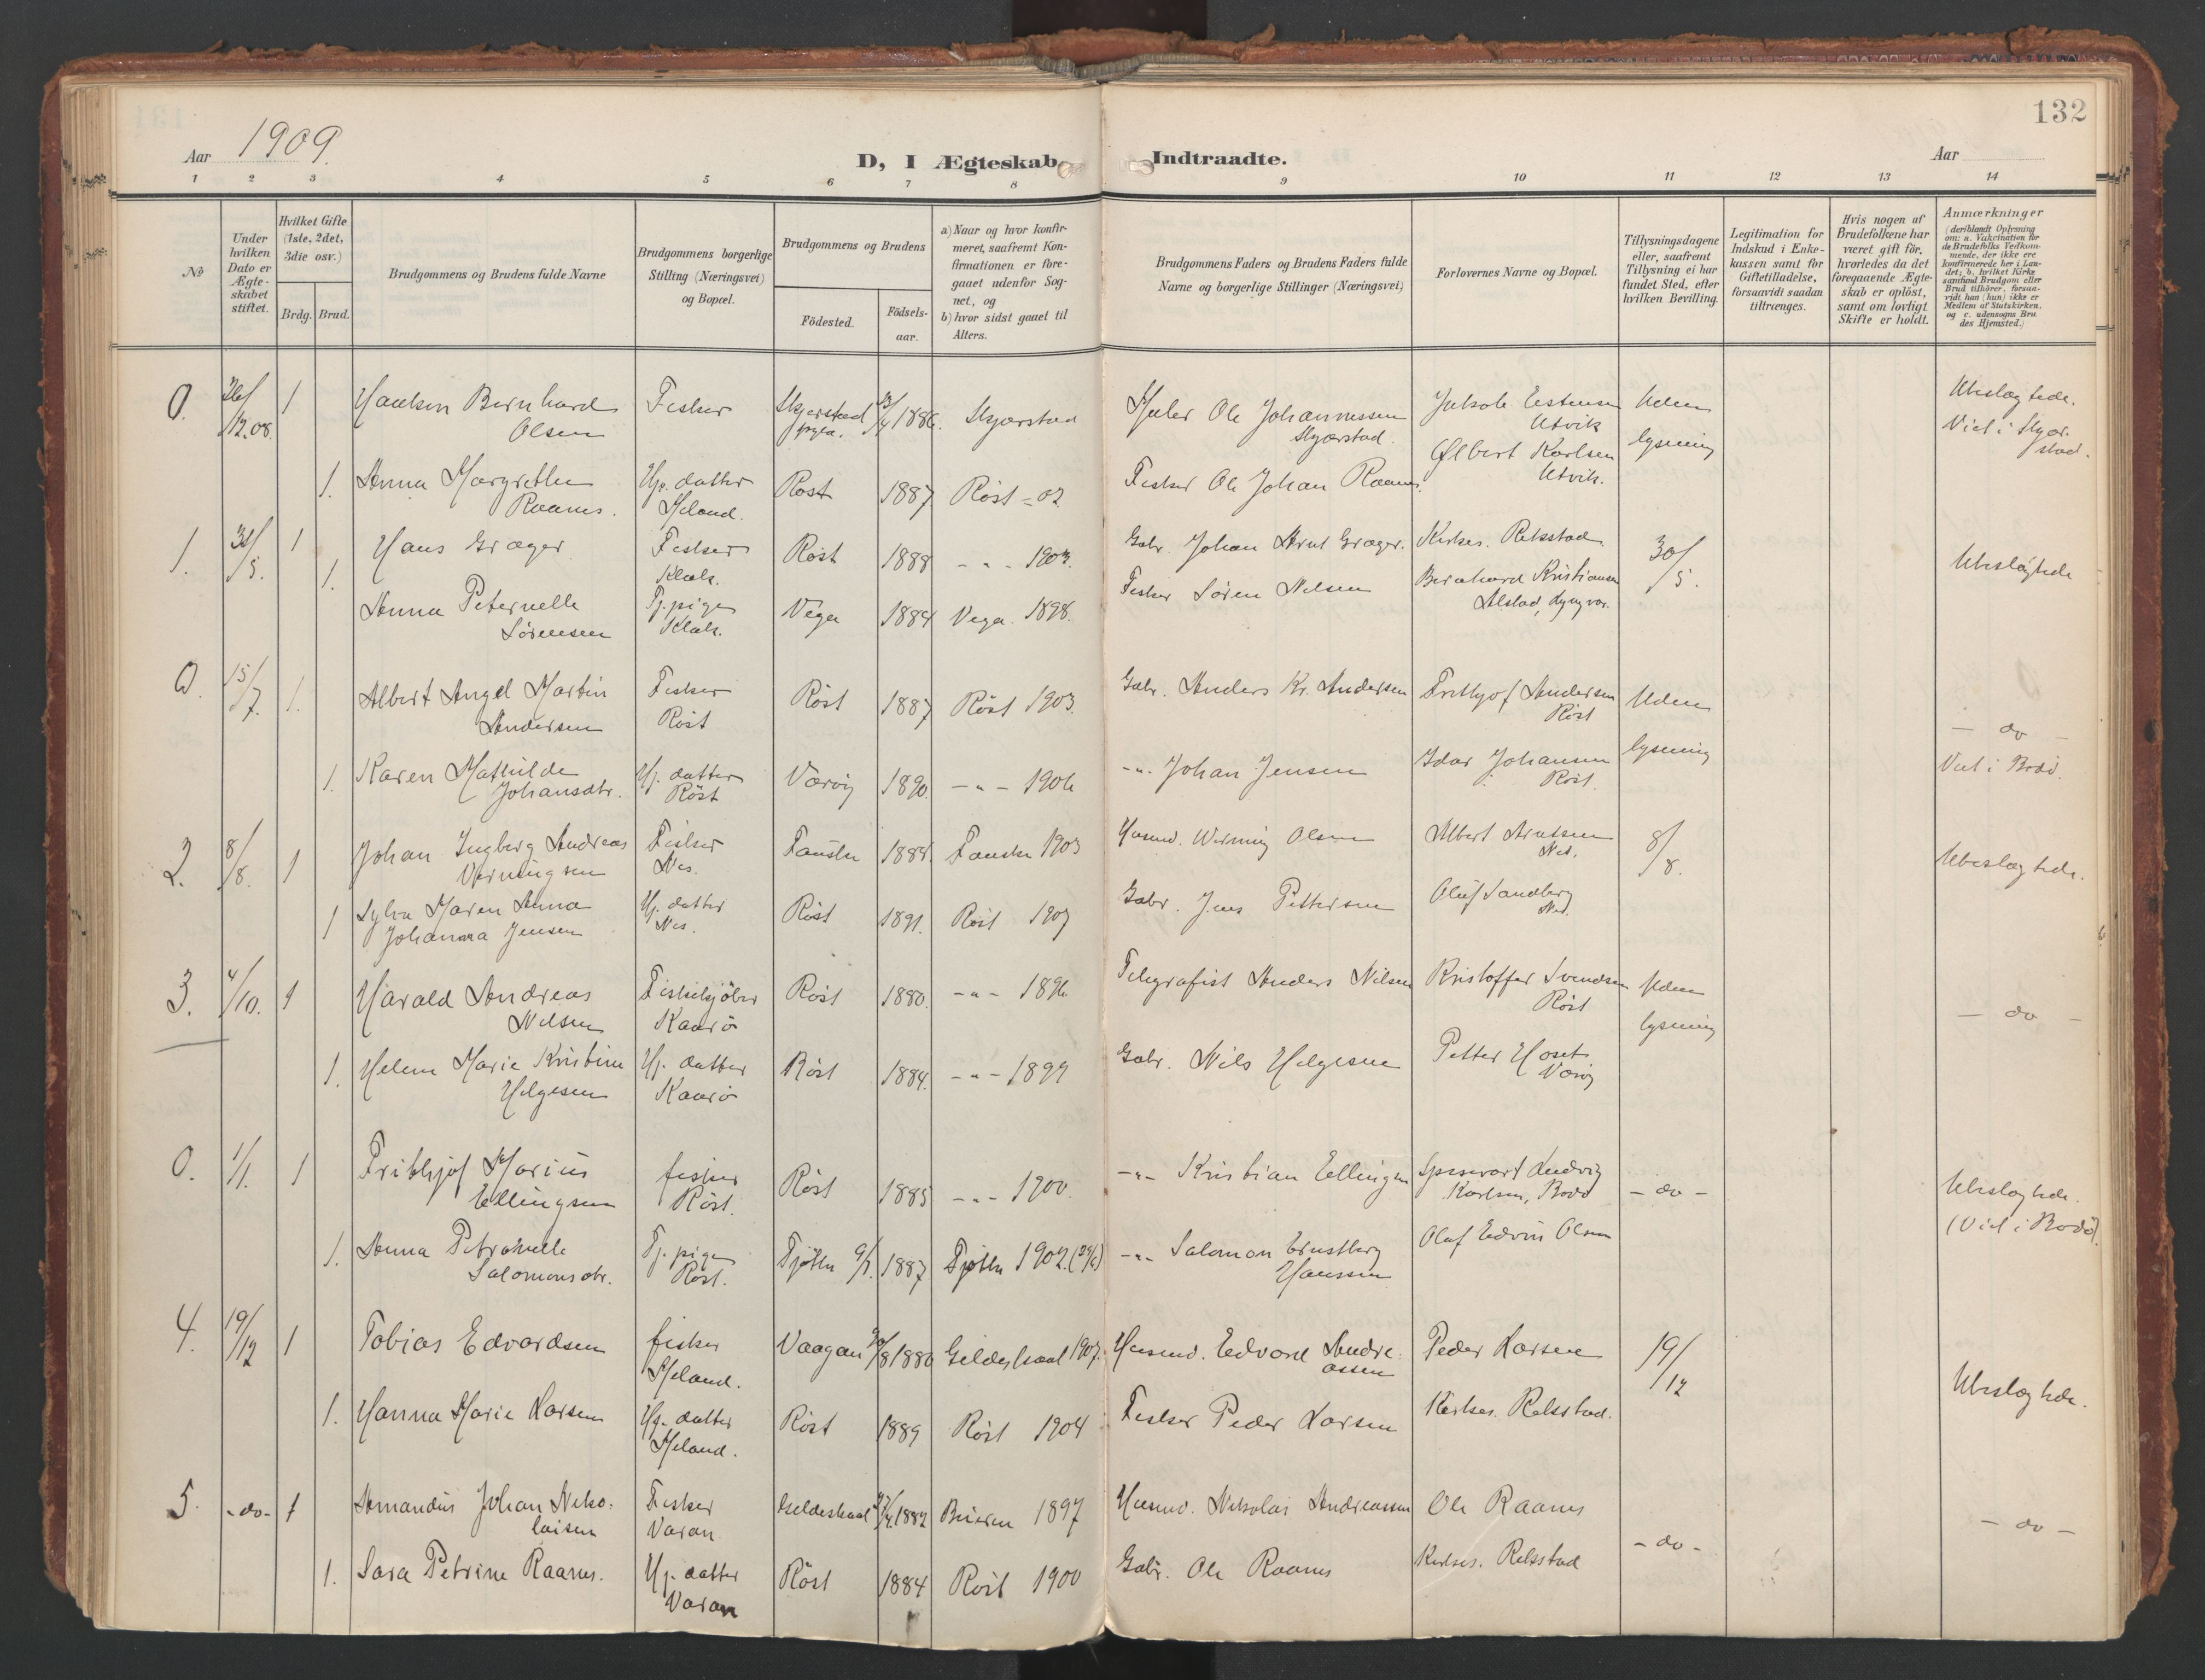 132
Aar 1909.
D, I Ægteskab
Indtraadte.
Aar
1 2 3 4 5 6 7 8 9 10 11 12 13 14
No
Under hvilken Dato er Ægte-skabet stiftet.
Hvilket Gifte (1ste, 2det, 3die osv.)
Brdg. Brud.
Brudgommens og Brudens fulde Navne
Brudgommens borgerlige Stilling (Næringsvei) og Bopæl.
Brudgommens og Brudens
Födested.
Födsels-aar.
a) Naar og hvor konfir-meret, saafremt Kon-firmationen er fore-gaaet udenfor Sog-net, og
b) hvor sidst gaaet til Alters.
Brudgommens Faders og Brudens Faders fulde Navne og borgerlige Stillinger (Næringsvei)
Forlovernes Navne og Bopæl.
Tillysningsdagene eller, saafremt Tillysning ei har fundet Sted, efter hvilken Bevilling.
Legitimation for Indskud i Enke-kassen samt for Giftetilladelse, forsaavidt saadan tiltrænges.
Hvis nogen af Brudefolkene har været gift för, hvorledes da det foregaaende Ægte-skab er oplöst, samt om lovligt Skifte er holdt.
Anmærkninger (deriblandt Oplysning om: a. Vakcination for de Brudefolks Vedkom-mende, der ikke ere konfirmerede her i Lan-det; b. hvilket Kirke samfund Brudgom eller Brud tilhörer, forsaa-vidt han (hun) ikke er Medlem af Statskirken, og c. udensogns Bru des Hjemsted.)
0. 26/12.08. 1 Haakon Bernhard Olsen Fisker Skjerstad 1886. Skjærstad Ole Johannessen Skjærstad. Jakob Estensen Utvik Uden lysning Ubeslægtede. Viet i Skjær-stad.
1. Anna Margrethe Raanes. Hj. datter Heland. Røst 1887 Røst - 02 Fisker Ole Johan Raanes. Ølbert Karlsen Utvik.
1. 31/5. 1 Hans Græger Fisker Klak. Röst 1888 - " - 1903. Gbr. Johan Arnt Græger. Kirkes. Relsstad. 30/5. Ubeslægtede
1. Anna Peternelle Sörensen Tj. pige Klak. Vega 1884 Vega. 1898. Fisker Sören Nilsen Bernhard Kristiansen Alstad,
0. 15/7. 1. Albert Angel Martin Andersen Fisker Röst Röst 1887 Röst 1903. Gbr. Anders Kr. Andersen Frithjof Andersen Röst Uden lysning - do -
1. Karen Mathilde Johansdtr. Hj. datter Röst Værøy 1890. - " - 1906 - " - Johan Jensen Idar Johansen Röst. Viet i Bodö.
2. 8/8. 1 Johan Ingberg Andreas Verningsen Fisker Nes. Fauske 1884. Fauske 1903 Husmd. Werning Olsen Albert Arntsen Nes. 8/8. Ubeslægtede.
1 Sylva Maren Anna Johanna Jensen Hj. datter Nes. Röst 1891. Röst 1907 Gbr. Jens Pettersen Oluf Sandberg Nes.
3. 4/10. 1 Harald Andreas Nilsen Fiskekjöber Kaarö Röst 1880. - " - 1896. Telegrafist Anders Nilsen Kristoffer Svendsen Röst Uden lysning - do -
1. Helene Marie Kristine Helgesen Hj. datter Kaarö Röst 1884. - " - 1899 Gbr. Nils Helgesen Petter Hoset Værøy
0. 1/1. 1 Frithjof Marius Ellingsen fisker Röst. Röst 1885 - " - 1900. - " - Kristian Ellingsen Spisevært Ludvig Karlsen, Bodö - do - Ubeslægtede. (Viet i Bodö).
1. Anna Petronelle Salomonsdtr. Tj. pige Röst. Tjötta 9/7. 1887 Tjötta 1902. - " - Salomon Ernstberg Hanssen Olaf Edvin Olsen
4. 19/12 1 Tobias Edvardsen fisker Heland. Vaagan 1880 Gildeskaal 1907. Husmd. Edvard Andre-assen Peder Larsen 19/12 Ubeslægtede.
1. Hanna Marie Larsen Hj. datter Heland. Röst 1889 Röst 1904 Fisker Peder Larsen Kirkes. Relsstad.
5. - do - 1 Amandus Johan Niko-laisen Fisker Varan Gildeskaal 1882 Beieren 1897 Husmd. Nikolai Andreassen Ole Raanes - do - - do -
1. Sara Petrine Raanes. Hj. datter Varan Röst 1884 Röst 1900 Gbr. Ole Raanes Kirkes. Relsstad